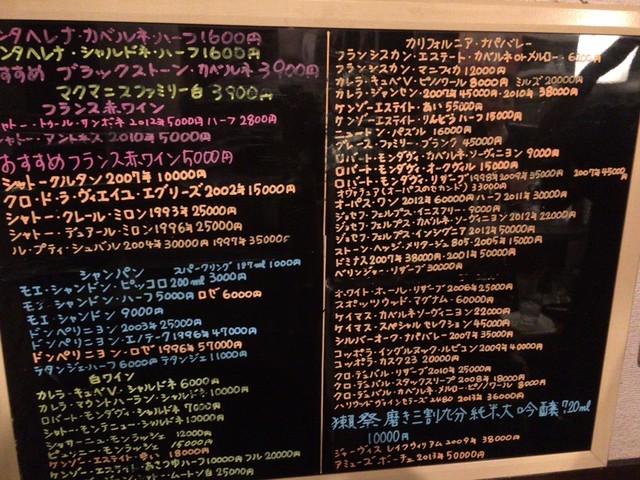 ンタヘレナ・カベルネ・ハーフ1600円
ンタヘレナ・シャルドネ・ハーフ1600円
すすめ ブラックストーン・カベルネ3900円
マクマニスファミリー白 3900円
フランス赤ワイン
2012年5000円 ハーフ2800円
シャトー・ 2010年5000円
おすすめフランス赤ワイン5000円
シャトークルタン2007年10000円
クロ・ド・ラ・ヴィエイユ・エグリーズ2002年15000円
シャトー・クレール・ミロン1993年25000円
シャトー・デュアール・ミロン1996年25000円
ル・プティ・シュバル2004年30000円 1997年35000円
シャンパン スパークリング187ml 1000円
モエ・シャンドン・ピッコロ200ml 3000円
モエ・シャンドン・ハーフ5000円 ロゼ6000円
モエ・シャンドン 9000円
ドンペリニヨン 2003年25000円
ドンペリニヨン・エノテーク1996年47000円
ドンペリニヨン・ロゼ1996年57000円
テタンジェ・ハーフ6000円 テタンジェ11000円
白ワイン
カレラ・キュベV・シャルドネ6000円
カレラ・マウントハーラン・シャルドネ10000円
ロバート・モンダヴィ・シャルドネ7000円
シャトー・モンテレーナ・シャルドネ10000円
シャサーニュ・モンラッシェ 12000円
ピュリニー・モンラッシェ 15000円
ケンゾー・エステイト・あい 18000円
ケンゾー・エステイト・あさつゆハーフ10000円 フル20000円
シャトー・ムートン白 25000円
カリフォルニア・ナパバレー
フランシスカン・エステート・カベルネorメルロー6200円
フランシスカン・マニフィカ12000円
カレラ・キュベV・ピノノワール8000円 ミルズ20000円
カレラ・ジャンセン2007年45000円・2010年38000円
ケンゾーエステイト・あい55000円
ケンゾーエステイト・りんどうハーフ15000円
ニュートン・パズル16000円
グレース・ファミリー・ブランク45000円
ロバート・モンダヴィ・カベルネ・ソーヴィニヨン9000円
ロバート・モンダヴィ・オークヴィル15000円
ロバート・モンダヴィ・リザーブ1998年35000円 2007年45000円
オヴァチュア(オーパスのセカンド)33000円
オーパス・ワン2012年60000円 ハーフ2011年30000円
ジョセフ・フェルプス・イニスフリー9000円
ジョセフ・フェルプス・カベルネ・ソーヴィニヨン2012年22000円
ジョセフ・フェルプス・インシグニア2012年50000円
ストーン・ヘッジ・メリテージュ805・2005年15000円
ドミナス2007年38000円・2001年50000円
ベリンジャー・リザーブ30000円
ホワイト・ホール・リザーブ2006年25000円
スポッツウッド・マグナム60000円
ケイマス・カベルネソーヴィニヨン22000円
ケイマス・スペシャルセレクション45000円
シルバーオーク・ナパバレー2007年35000円
コッポラ・イングルヌック・ルビコン2009年40000円
コッポラ・カスク23 20000円
クロ・デュバル・リザーブ2010年25000円
クロ・デュバル・スタッグスリープ2008年18000円
クロ・デュバル・カベルネ・メルロー・ピノノワール8000円
ハリウッドヴィセラーズ2480 2013年36000円
獺祭 磨き三割九分 純米大吟醸720ml
10000円
ジャーヴィス レイクウィリアム2009年38000円
アミューズ ブーシェ2013年50000円